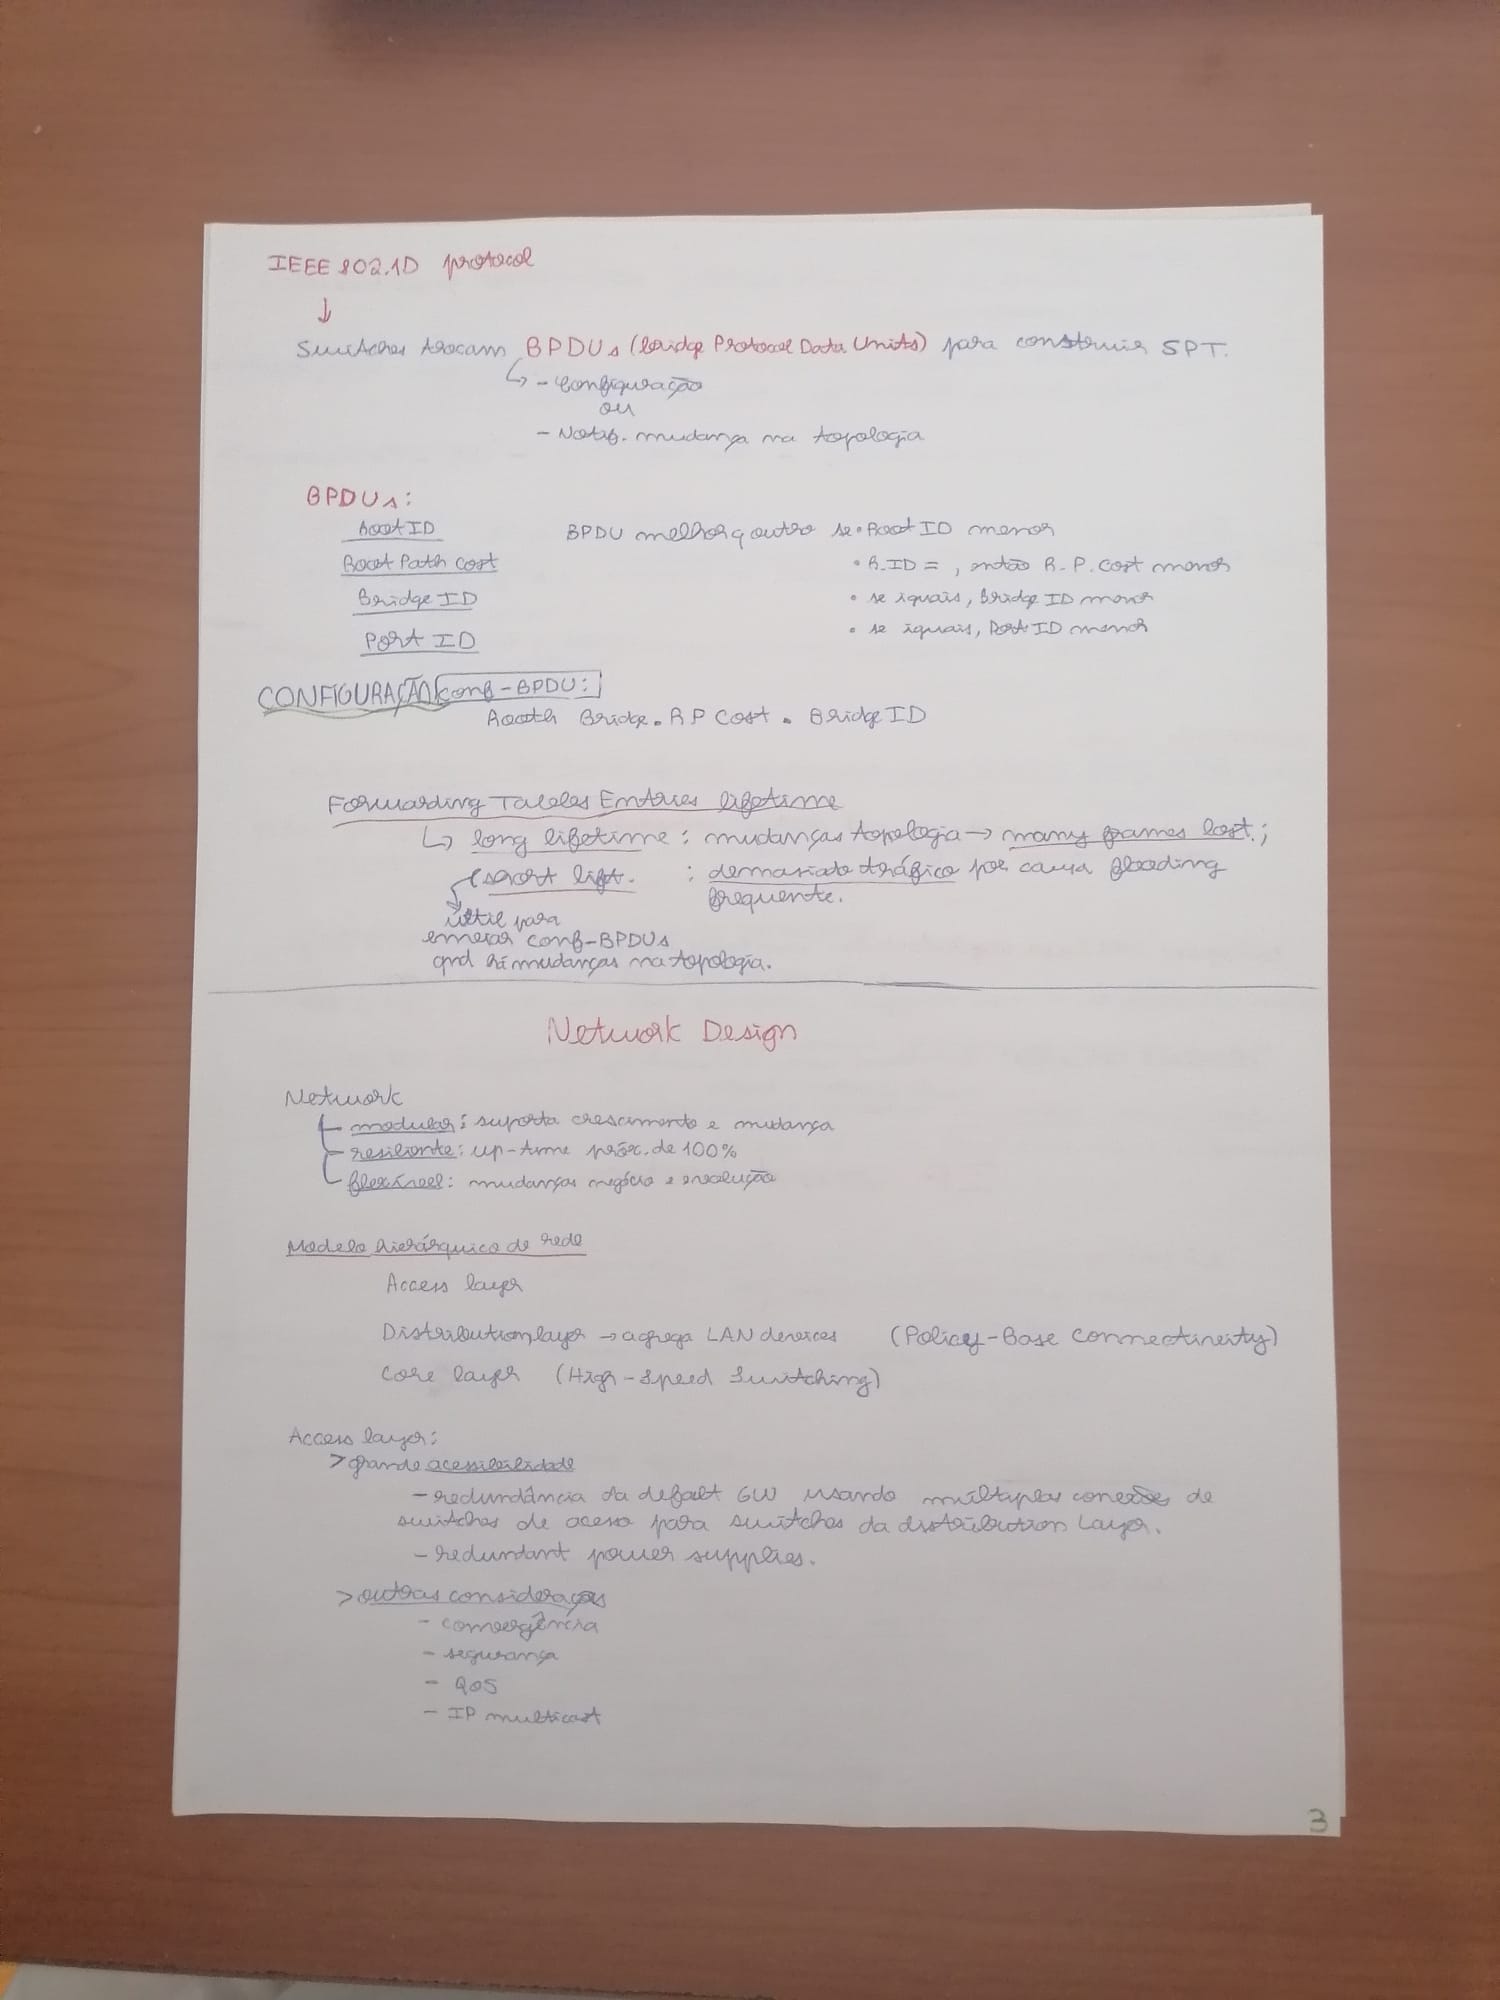 IEEE 802.1D protocol
↓
Switches trocam BPDUs (bridge Protocol Data Units) para construir SPT.
↳ - Configuração
ou
- Notif. mudança na topologia
BPDUs:
Root ID
Root Path Cost
Bridge ID
Port ID
BPDU melhor q outro se • Root ID menor
• R.ID = , então R.P. cost menor
• se iguais, Bridge ID menor
• se iguais, Port ID menor
CONFIGURAÇÃO conf-BPDU:
Rooth Bridge . RP Cost . Bridge ID
Forwarding Tables Entries lifetime
↳ long lifetime : mudanças topologia → many frames lost.;
short lift. : demasiado tráfico por causa flooding
frequente.
útil para
enviar conf-BPDUs
qnd há mudanças na topologia.
Network Design
Network
- modular: suporta crescimento e mudança
- resiliente: up-time próx. de 100%
- flexível: mudanças negócio e evolução
Modelo hierárquico de rede
Access layer
Distribution layer → agrega LAN devices (Policy-Base Connectivity)
Core layer (High-Speed Switching)
Access layer:
> grande acessibilidade
- redundância da defalt GW usando múltiplas conexões de
switches de acesso para switches da distribution Layer.
- redundant power supplies.
> outras considerações
- convergência
- segurança
- QoS
- IP multicast
3